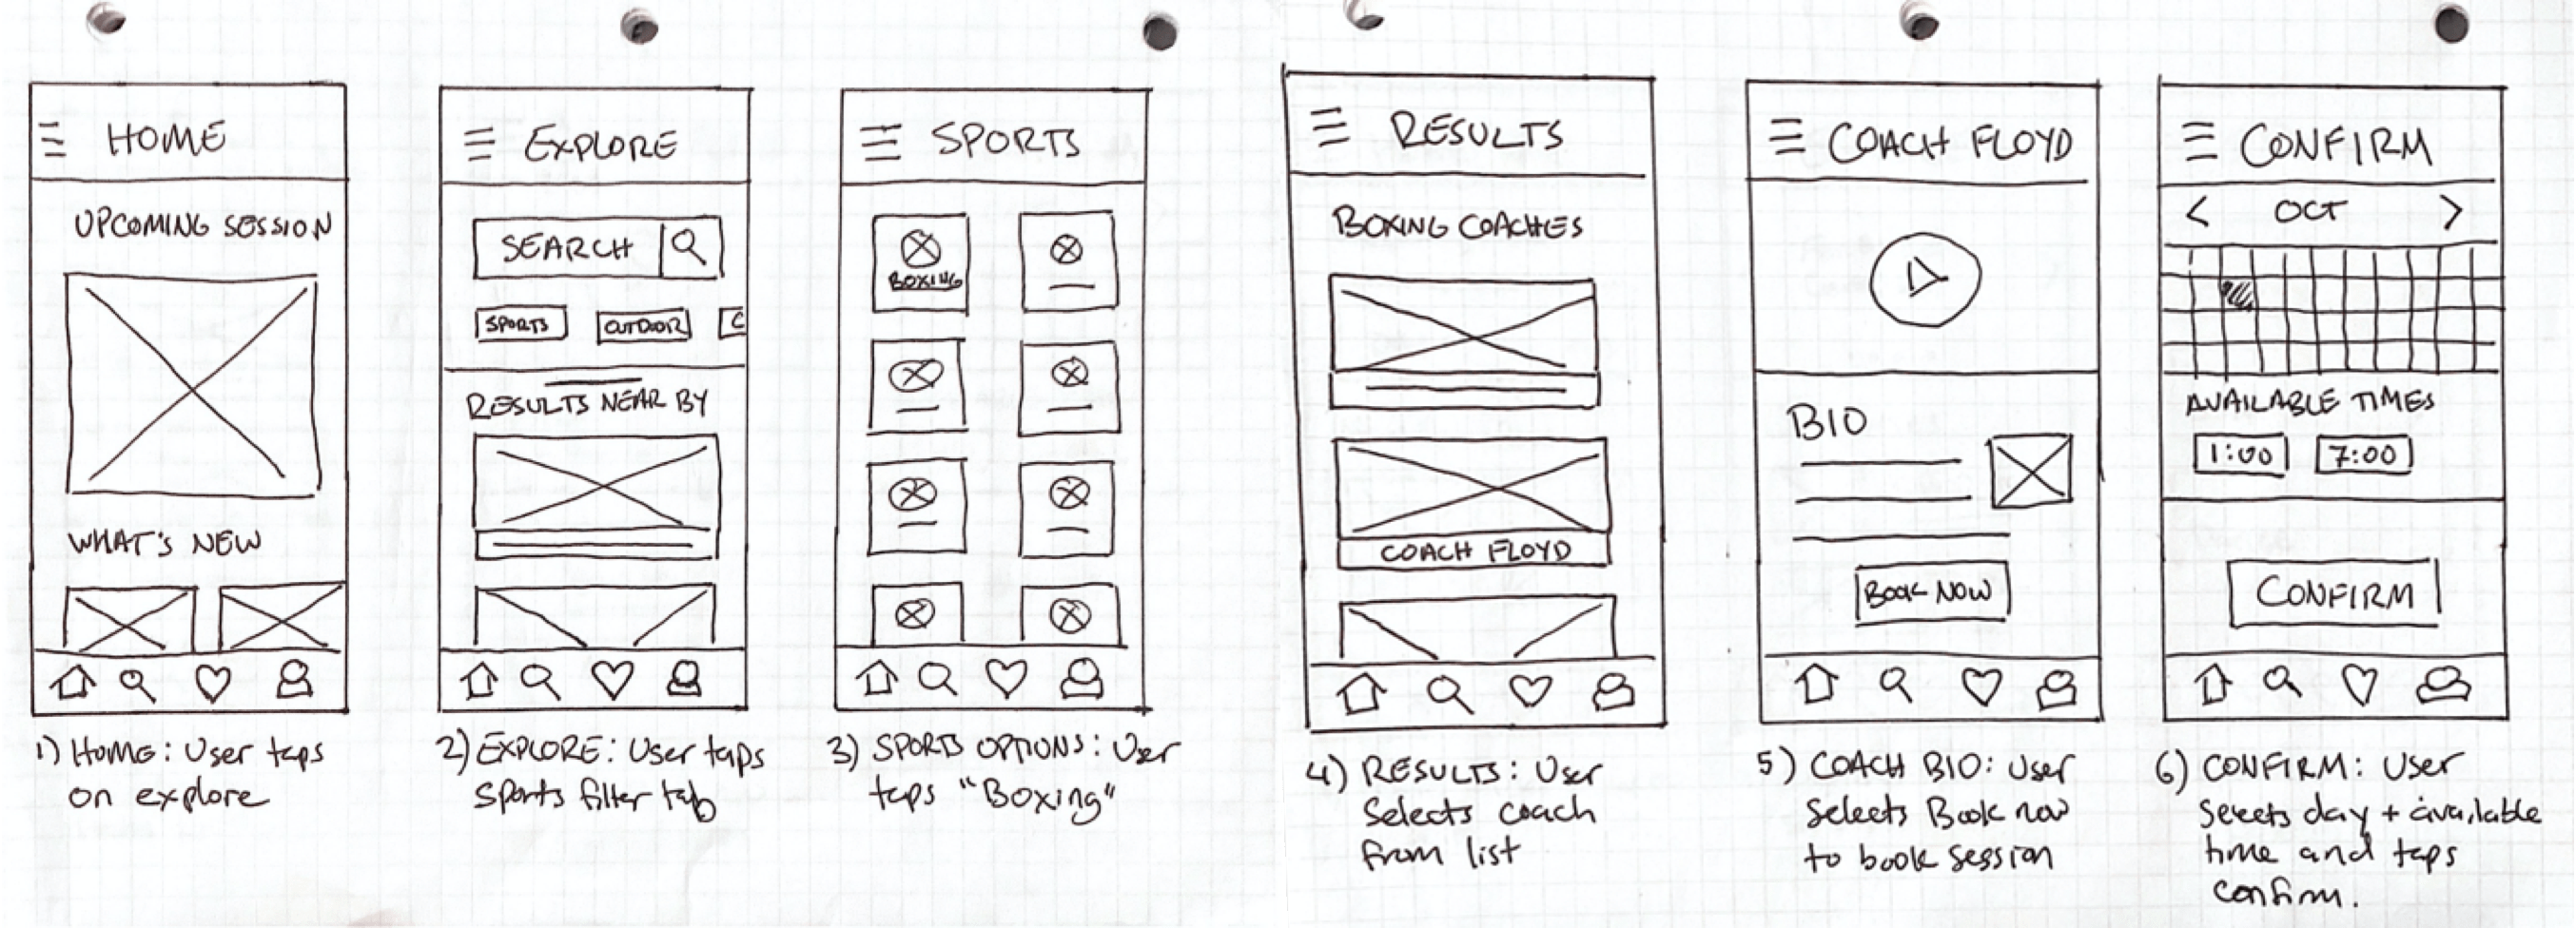 HOME
UPCOMING SESSION
WHAT'S NEW
1) HOME: User taps
on explore
EXPLORE
SEARCH
SPORTS OUTDOOR C
RESULTS NEAR BY
2) EXPLORE: User taps
sports filter tab
SPORTS
BOXING
3) SPORTS OPTIONS: User
taps "Boxing"
RESULTS
BOXING COACHES
COACH FLOYD
4) RESULTS: User
Selects coach
from list
COACH FLOYD
BIO
BOOK NOW
5) COACH BIO: User
Selects Book now
to book session
CONFIRM
< OCT >
AVAILABLE TIMES
1:00 7:00
CONFIRM
6) CONFIRM: User
selects day + available
time and taps
confirm.